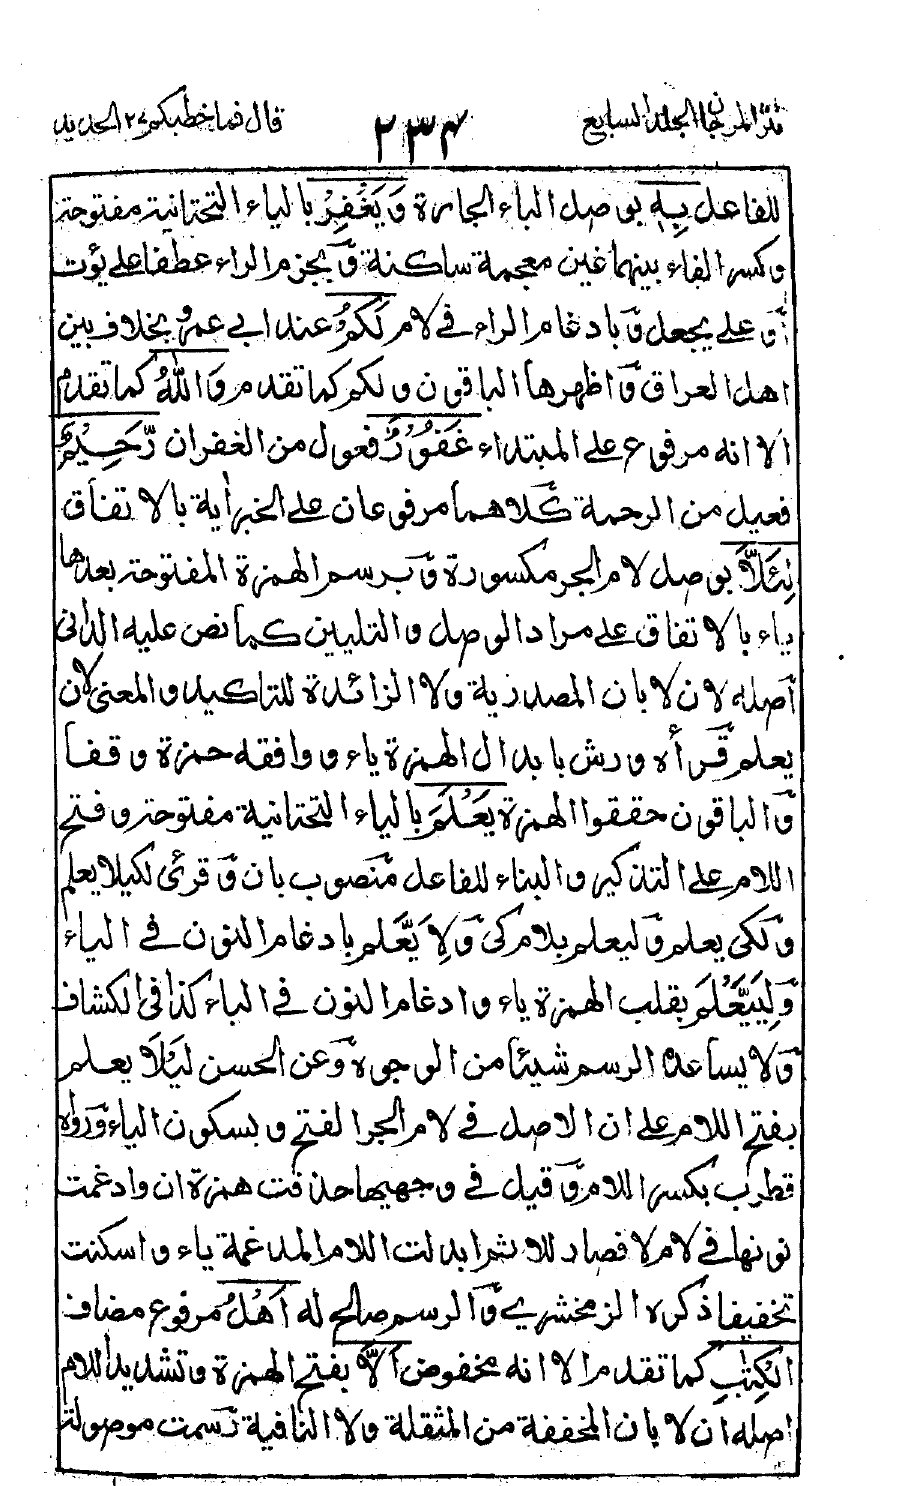 نثر المرجان الجلد السابع ٢٣٤ قال فما خطبكم ٢٧ الحديد
للفاعل بِهٖ بوصل الباء الجارة وَيَغْفِرْ بالياء التحتانية مفتوحة
وكسر الفاء بينهما غين معجمة ساكنة وبجزم الراء عطفا على يؤت
أو على يجعل وبادغام الراء في لام لَكُمْ عند ابي عمرو بخلاف بين
اهل العراق واظهرها الباقون ولكم كما تقدم وَاللّٰهُ كما تقدم
الا انه مرفوع على المبتداء غَفُوْرٌ فعول من الغفران رَّحِيْمٌ
فعيل من الرحمة كلاهما مرفوعان على الخبر أية بالاتفاق
لِئَلَّا بوصل لام الجر مكسورة وبرسم الهمزة المفتوحة بعدها
ياء بالاتفاق على مراد الوصل والتليين كما نص عليه الداني
أصله لان لا بان المصدرية ولا الزائدة للتاكيد والمعنى لان
يعلم قرأه ورش بابدال الهمزة ياء ووافقه حمزة وقفا
والباقون حققوا الهمزة يَعْلَمَ بالياء التحتانية مفتوحة وفتح
اللام على التذكير والبناء للفاعل منصوب بان وقرئ لكيلا يعلم
ولكي يعلم وليعلم بلام كي ولِاَيَّعلم بادغام النون في الياء
ولِيَيَّعْلَمَ بقلب الهمزة ياء وادغام النون في الياء كذا في الكشاف
ولا يساعد الرسم شيئا من الوجوه وعن الحسن لَيْلَا يعلم
بفتح اللام على ان الاصل في لام الجر الفتح وبسكون الياء ورواه
قطرب بكسر اللام وقيل في وجهيها حذفت همزة ان وادغمت
نونها في لام لا فصار للا ثم ابدلت اللام المدغمة ياء واسكنت
تخفيفا ذكره الزمخشري والرسم صالح له اَهْلُ مرفوع مضاف
الْكِتٰبِ كما تقدم الا انه مخفوض اَلَّا بفتح الهمزة وتشديد اللام
اصله ان لا بان المخففة من المثقلة ولا النافية رسمت موصولة